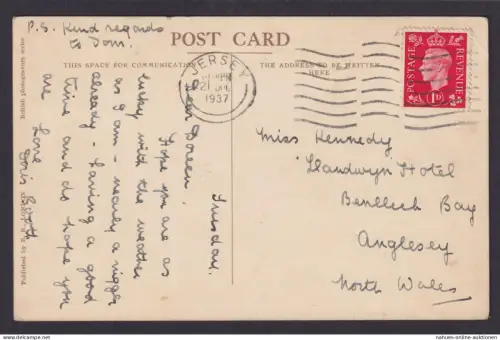 P.S. Kind regards
to Dom.
POST CARD
THIS SPACE FOR COMMUNICATION
THE ADDRESS TO BE WRITTEN
HERE
JERSEY
1937
POSTAGE
REVENUE
1D
Tuesday.
Dear Doreen,
Hope you are as
lucky with the weather
as I am - nearly a nigger
already - having a good
time and do hope you
are
Love
Doris Booth
Miss Kennedy
Llandwyn Hotel
Benllech Bay
Anglesey
North Wales
British photogravure series
Published by
nahuen-online-auktionen